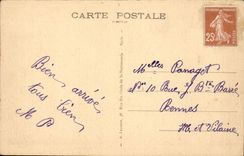 CARTE POSTALE
Bien arrivé
tous bien
M P
Melles Panaget
No 10 Rue J. Bte Barré
Rennes
Ille et Vilaine
25